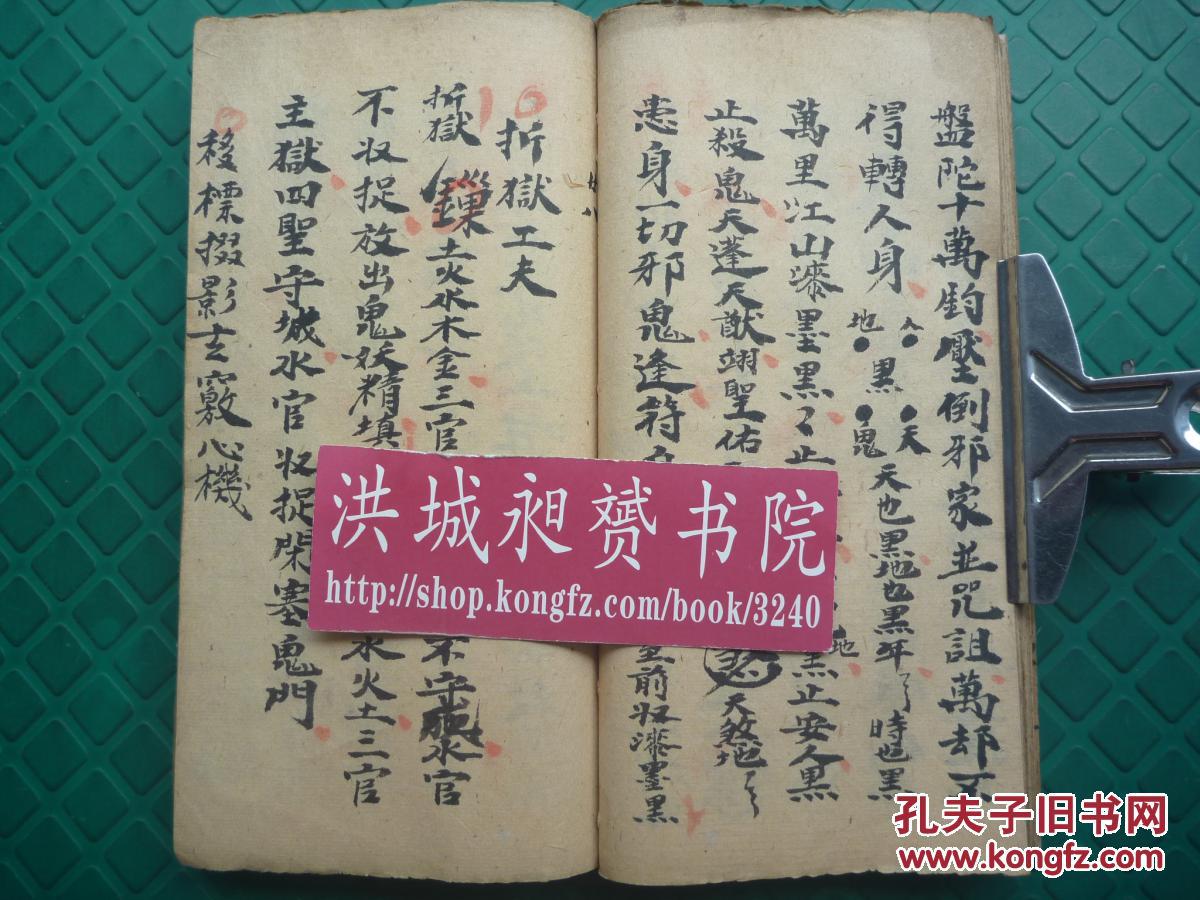 盤陀十萬鈞壓倒邪家並咒詛萬却不
得轉人身 地黑鬼天 天也黑地也黑年〻時也黑
萬里江山漆墨黑〻止 黑止安人黑
地
止殺鬼天蓬天猷翊聖佑 天煞地〻
患身一切邪鬼逢符 前收漆墨黑
折獄工夫
折獄 土火水木金三官 不守 水官
不收捉放出鬼妖精填 水火土三官
主獄四聖守城水官收捉閉塞鬼門
移標掇影玄竅心機
洪城昶赟书院
http://shop.kongfz.com/book/3240
孔夫子旧书网
www.kongfz.com